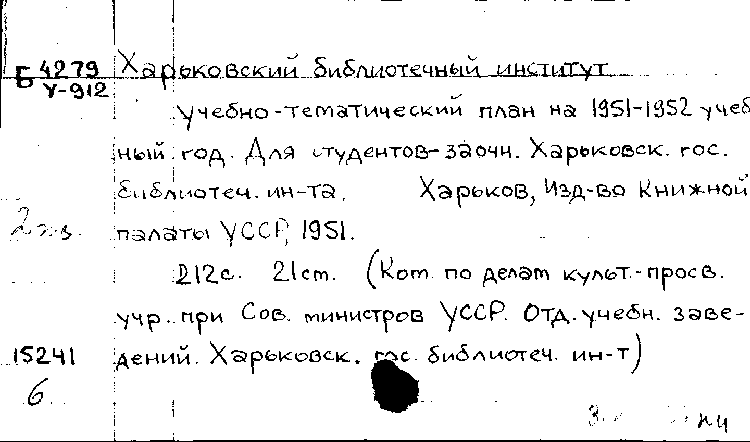 Б 4279
У-912
Харьковский библиотечный институт
Учебно-тематический план на 1951-1952 учеб
ный год. Для студентов-заочн. Харьковск. гос.
библиотеч. ин-та. Харьков, Изд-во Книжной
2 экз.
палаты УССР, 1951.
212с. 21ст. (Ком. по делам культ.-просв.
учр. при Сов. министров УССР. Отд. учебн. заве-
15241
дений. Харьковск. гос. библиотеч. ин-т)
6